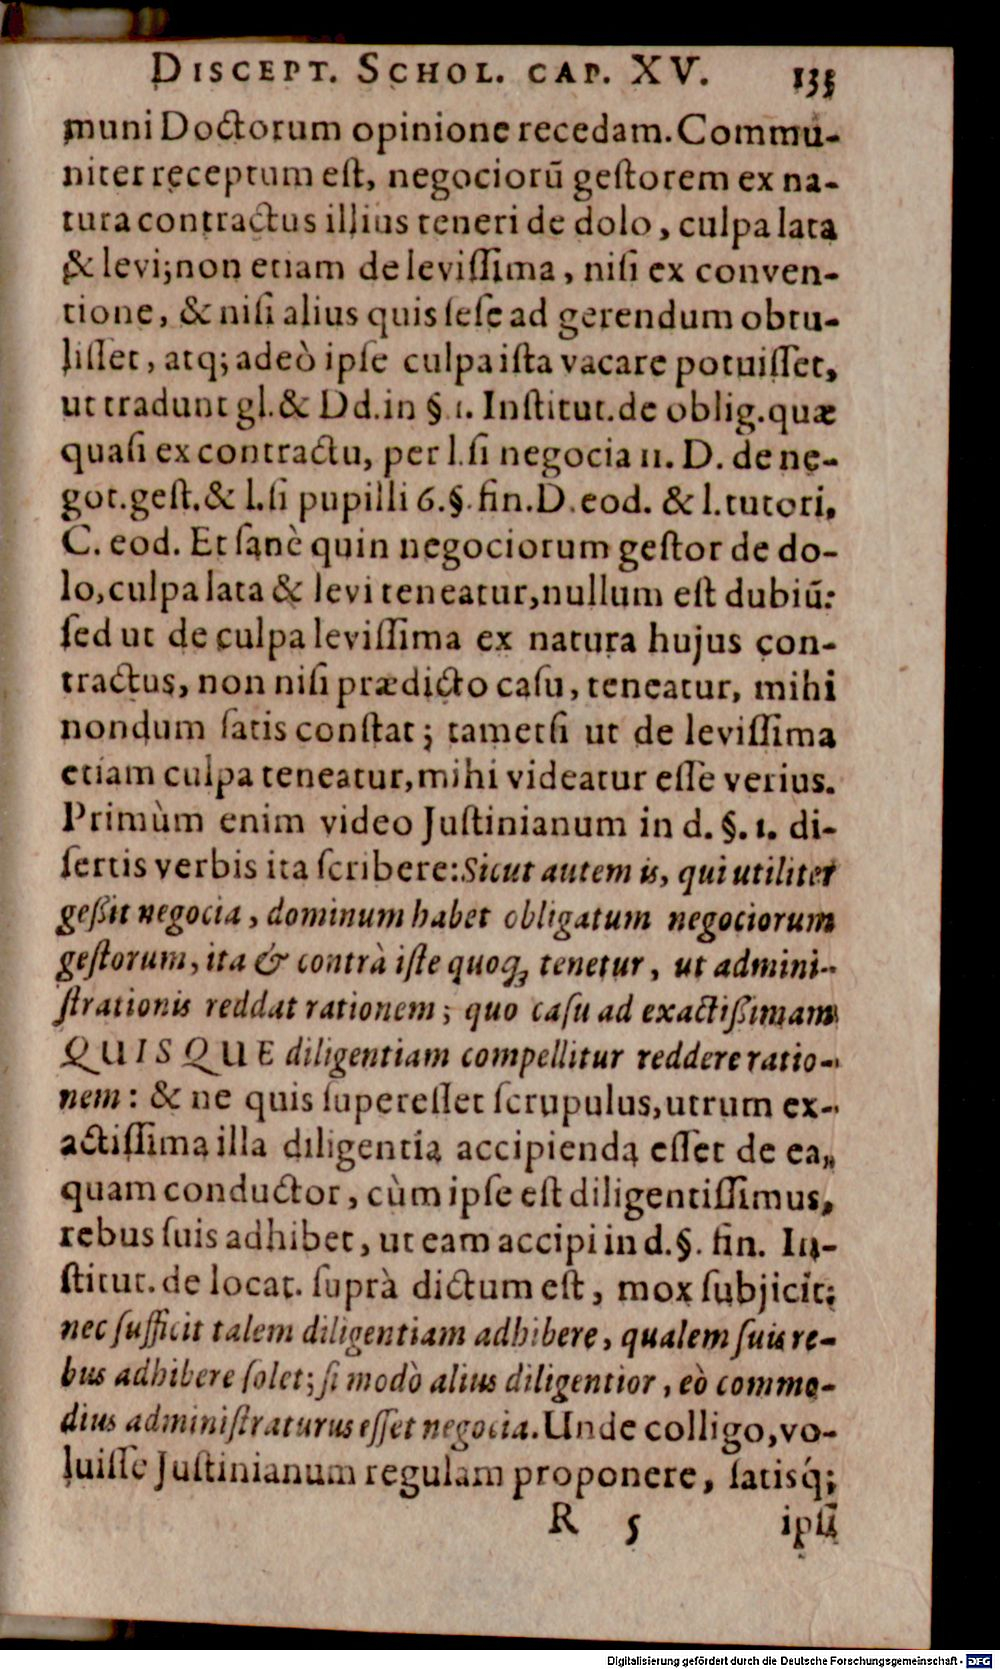 DISCEPT. SCHOL. CAP. XV. 135
muni Doctorum opinione recedam. Commu-
niter receptum est, negociorū gestorem ex na-
tura contractus illius teneri de dolo, culpa lata
& levi; non etiam de levissima, nisi ex conven-
tione, & nisi alius quis sese ad gerendum obtu-
lisset, atq; adeò ipse culpa ista vacare potuisset,
ut tradunt gl. & Dd. in §. 1. Institut. de oblig. quæ
quasi ex contractu, per l. si negocia 11. D. de ne-
got. gest. & l. si pupilli 6. §. fin. D. eod. & l. tutori,
C. eod. Et sanè quin negociorum gestor de do-
lo, culpa lata & levi teneatur, nullum est dubiū:
sed ut de culpa levissima ex natura hujus con-
tractus, non nisi prædicto casu, teneatur, mihi
nondum satis constat; tametsi ut de levissima
etiam culpa teneatur, mihi videatur esse verius.
Primùm enim video Justinianum in d. §. 1. di-
sertis verbis ita scribere: Sicut autem is, qui utiliter
geßit negocia, dominum habet obligatum negociorum
gestorum, ita & contrà iste quoq; tenetur, ut admini-
strationis reddat rationem; quo casu ad exactißimam
QUISQUE diligentiam compellitur reddere ratio-
nem: & ne quis superesset scrupulus, utrum ex-
actissima illa diligentia accipienda esset de ea,
quam conductor, cùm ipse est diligentissimus,
rebus suis adhibet, ut eam accipi in d. §. fin. In-
stitut. de locat. suprà dictum est, mox subjicit:
nec sufficit talem diligentiam adhibere, qualem suis re-
bus adhibere solet; si modò alius diligentior, eò commo-
dius administraturus esset negocia. Unde colligo, vo-
luisse Justinianum regulam proponere, satisq́;
R 5 ipsi
Digitalisierung gefördert durch die Deutsche Forschungsgemeinschaft - DFG